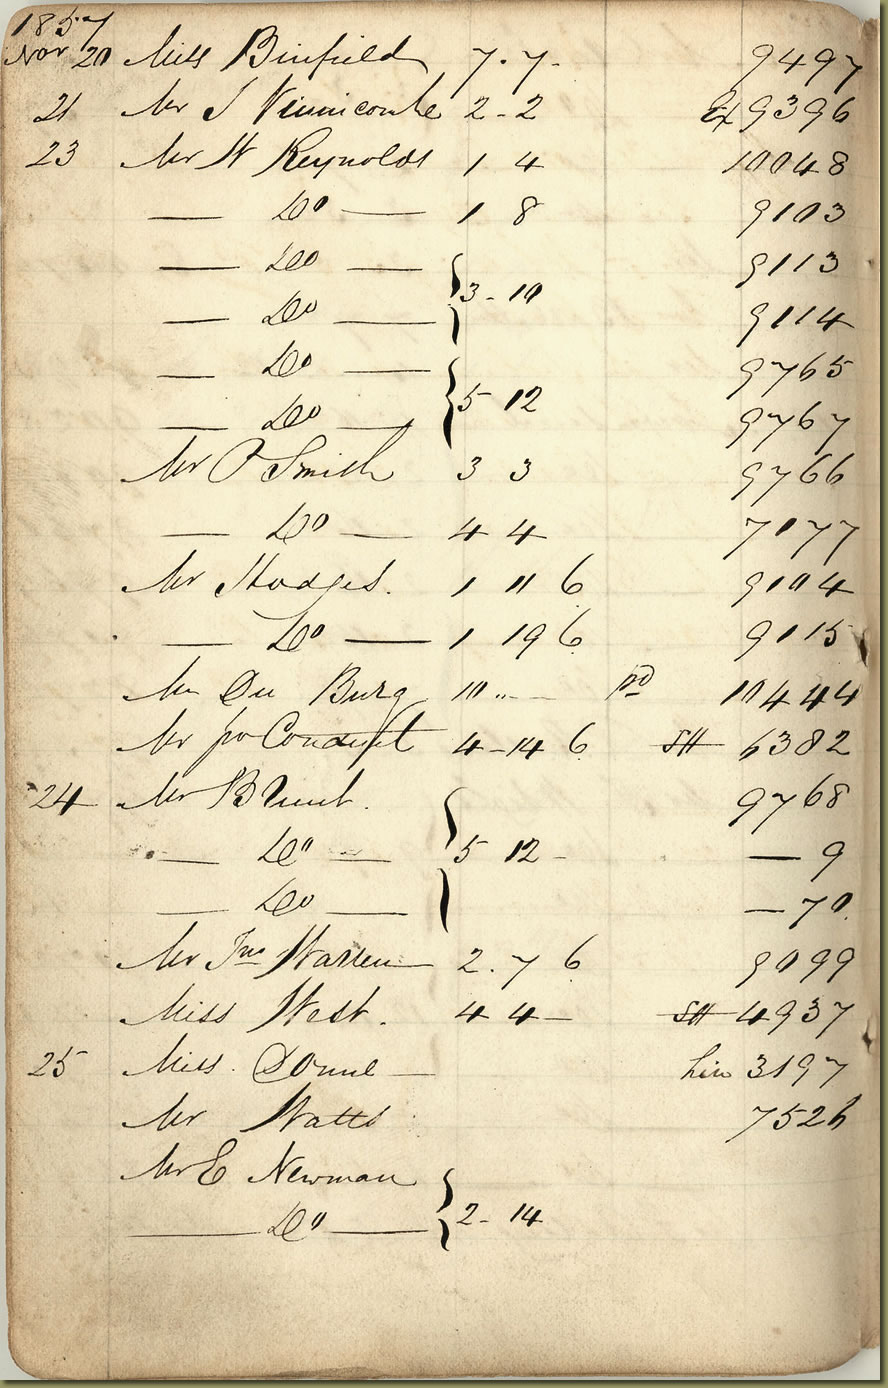 1857
Nov 20 Miss Binfield 7.7- 9497
21 Mr J Vinnicombe 2-2 Ex 9396
23 Mr W Reynolds 1 4 10048
— Do — 1 8 9103
— Do — 9113
— Do — } 3-10 9114
— Do — 9765
— Do — } 5 12 9767
Mr O Smith 3 3 9766
— Do — 4 4 7077
Mr Hodges. 1 11 6 9104
— Do — 1 19 6 9115
Mr Du Burg 10 ..— pd 10444
Mr Jno Conduit 4-14 6 SH 6382
24 Mr Blunt. 9768
— Do — } 5 12 - — 9
— Do — — 70
Mr Jno Warren 2.7 6 9099
Miss West. 4 4 — SH 4937
25 Miss. Donne — 3197
Mr Watts 7526
Mr E Newman
— Do — } 2-14